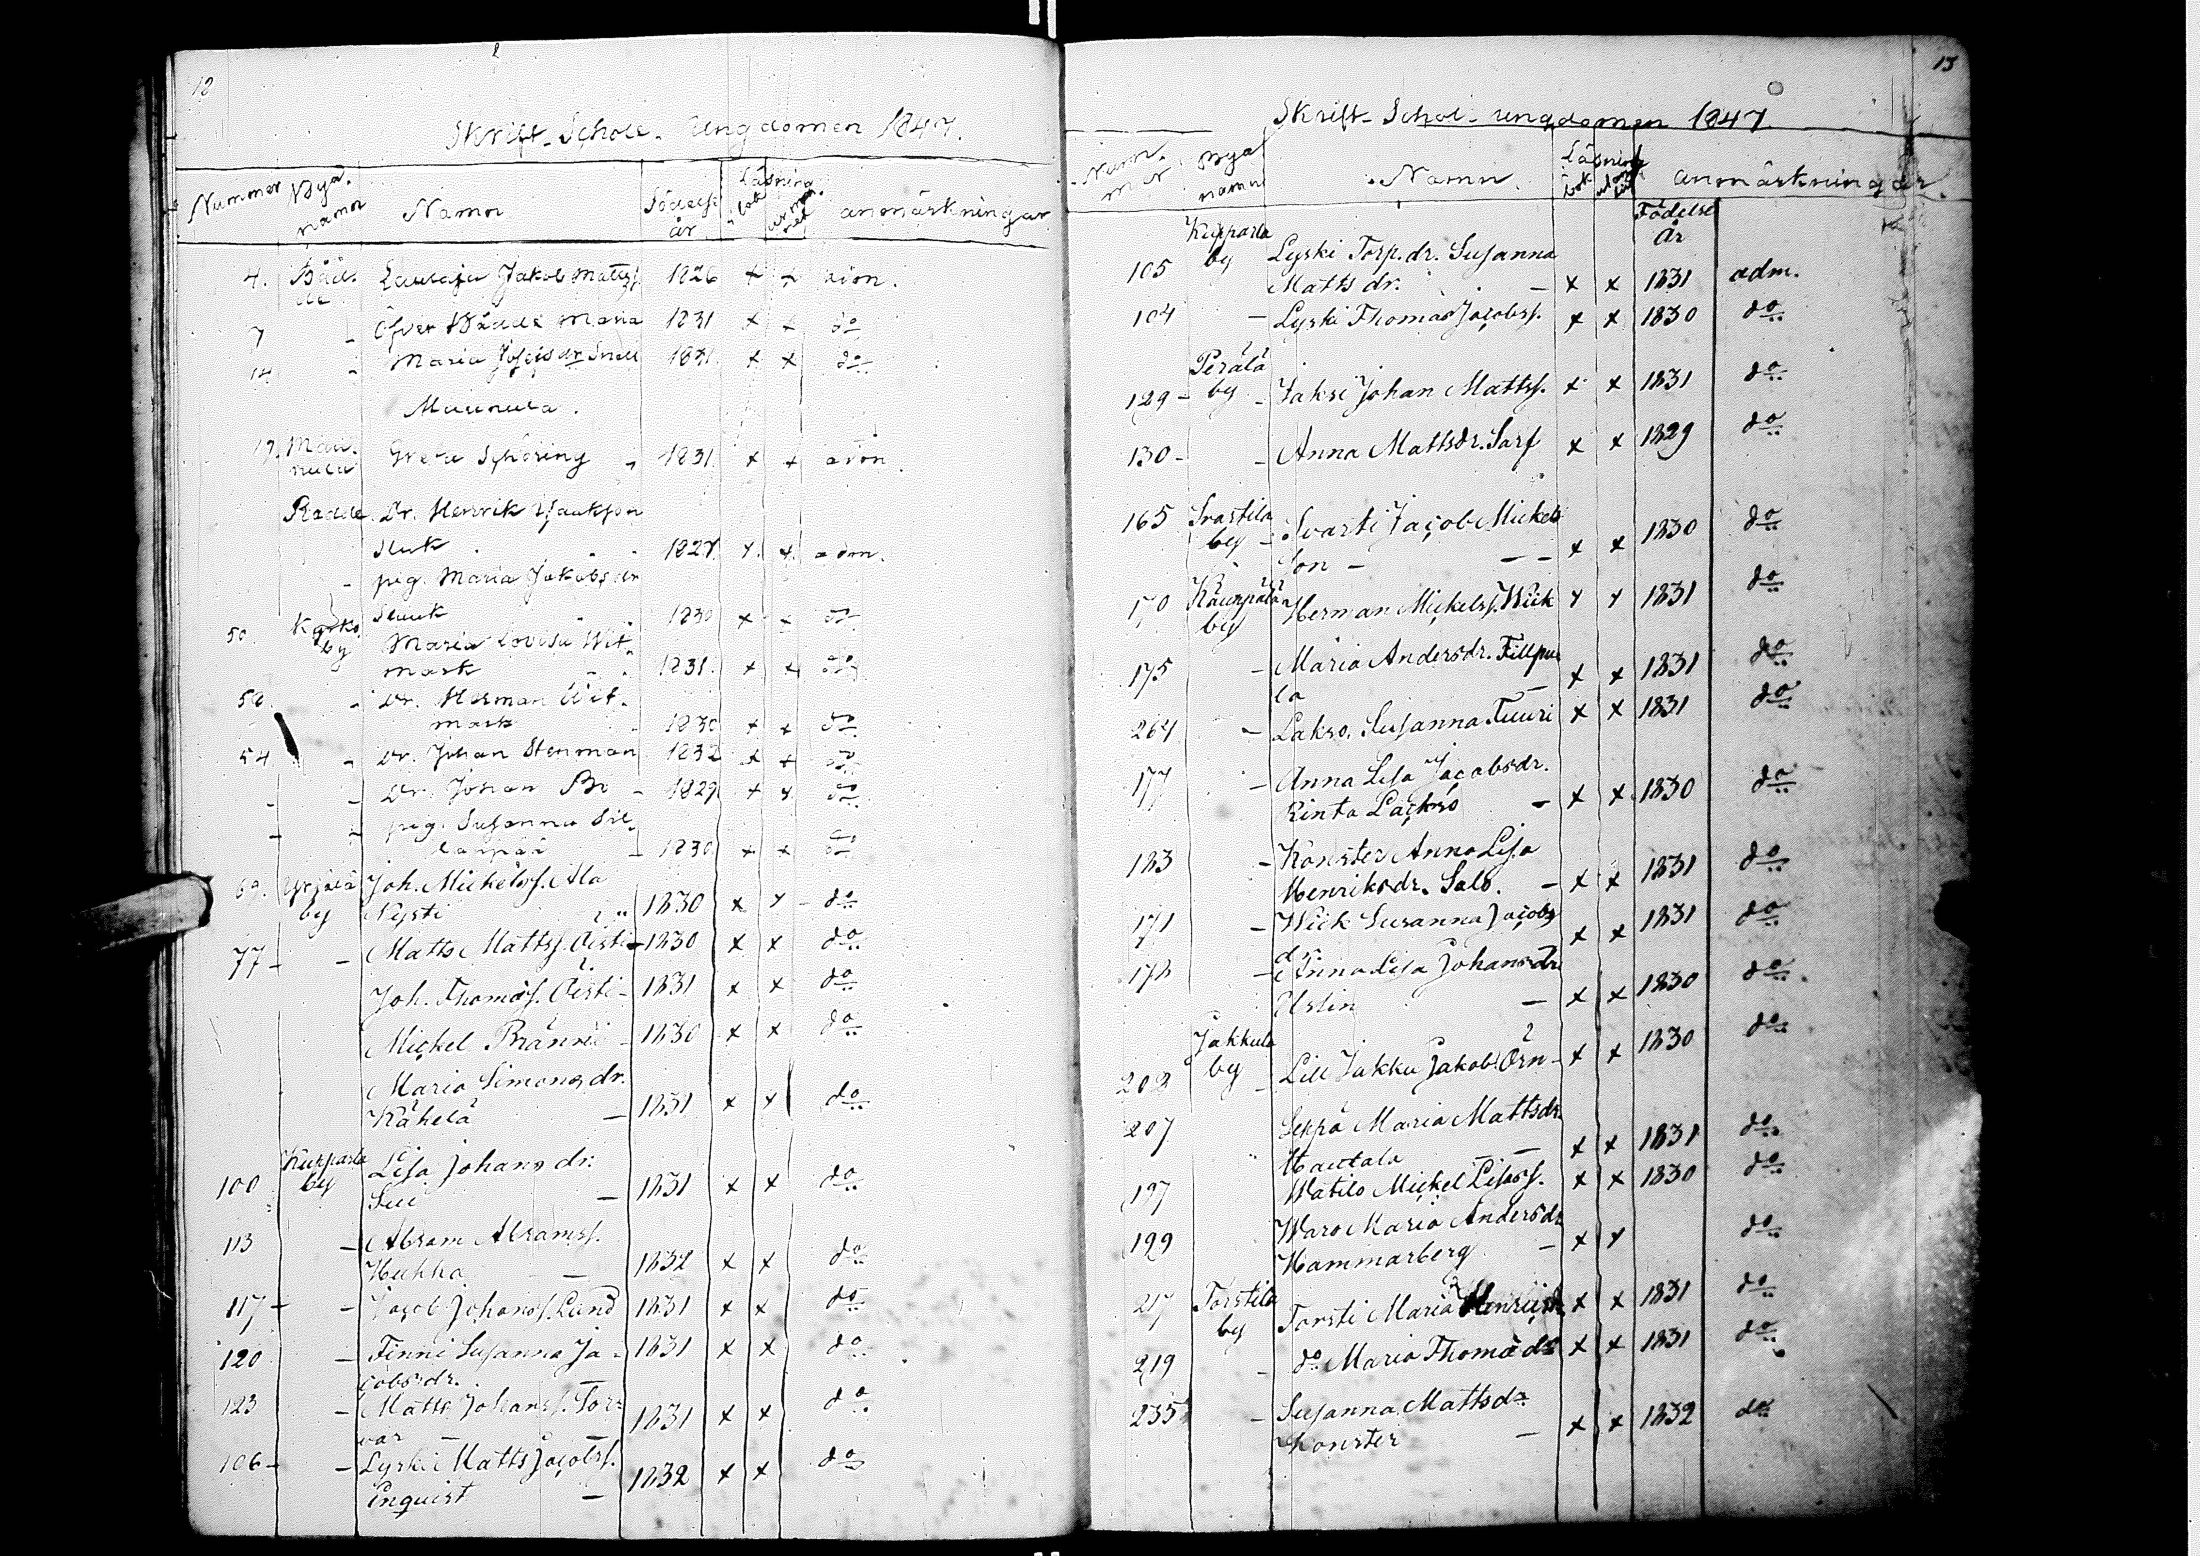 12
Skrift-Schole-Ungdomen 1847.
Nummer Bya-namn Namn Födels. år Läsning i bok ur min- net anmärkningar
4. Bådde Lauraja Jakob Mattss. 1826 x x adm.
7 - Öfver Bådde Maria 1831 x x do
14 - Maria Josefsdr Snell 1831 x x do
Maunula.
19. Mau-
nula Greta Schöring 1831 x x adm.
Radde Dr. Henrik Isaksson
Sluk 1827. x x adm.
- pig. Maria Jakobsdr
Sluk 1830 x x do
50. Karko by Maria Lovisa Wit-
mark 1831. x x do
52. - Dr. Herman Wit-
mark 1830 x x do
54 - Dr. Johan Stenman 1832 x x do
- - Dr. Johan Bo - 1829 x x do
- - pig. Susanna Sil-
lanpää - 1830 x x do
69. Yrjälä by Joh. Mickelss. Ala
Nysti 1830 x x do
77 - - Matts Mattss. Äisti 1830 x x do
Joh. Thomass. Äisti - 1831 x x do
Mickel Brännä - 1830 x x do
Maria Simonsdr.
Kähelä - 1831 x x do
100 Kupparla by Lisa Johansdr.
Sui - 1831 x x do
113 - Abram Abramss.
Huhha - 1832 x x do
117 - - Jacob Johanss. Lund 1831 x x do
120 - Finni Susanna Ja- 1831 x x do
cobsdr.
123 - Matts Johanss. Tor-
var - 1831 x x do
106 - - Lyski Matts Jacobss.
Enquist - 1832 x x do
13
Skrift-Schol-ungdomen 1847
Num-
mer Bya namn Namn. Läsning i bok utan bok anmärkningar.
Födelse
År
105 Kupparla by Lyski Torp.dr. Susanna
Mattsdr. - x x 1831 adm.
104 - Lyski Thomas Jacobss. x x 1830 do
129 - Perälä by - Jaksi Johan Mattss. x x 1831 do
130 - - Anna Mattsdr. Sarf x x 1829 do
165 Svartila by - Svarti Jacob Mickels
son - - - x x 1830 do
170 Kaunpään by Herman Mickelss. Wiik x x 1831 do
175 - Maria Andersdr. Fillpu
la - x x 1831 do
264 - Lakso. Susanna Tuuri x x 1831 do
177 - Anna Lisa Jacobsdr.
Rinta Lackso - x x 1830 do
183 - Konster Anna Lisa
Henriksdr. Salo. - x x 1831 do
171 - Wiik Susanna Jacobs
dr. x x 1831 do
172 - Anna Lisa Johansdr
Uslin - x x 1830 do
202 Jakkula by - Lill Jakku Jakob Örn - x x 1830 do
207 Seppä Maria Mattsdr.
Hautala - - x x 1831 do
197 Watilo Mickel Lisass. x x 1830 do
199 Waro Maria Andersdr
Hammarberg - x x do
217 Torstila by Torsti Maria Henriksdr x x 1831 do
219 - do Maria Thomasdr x x 1831 do
235 - Susanna Mattsdr
Konster - x x 1832 do